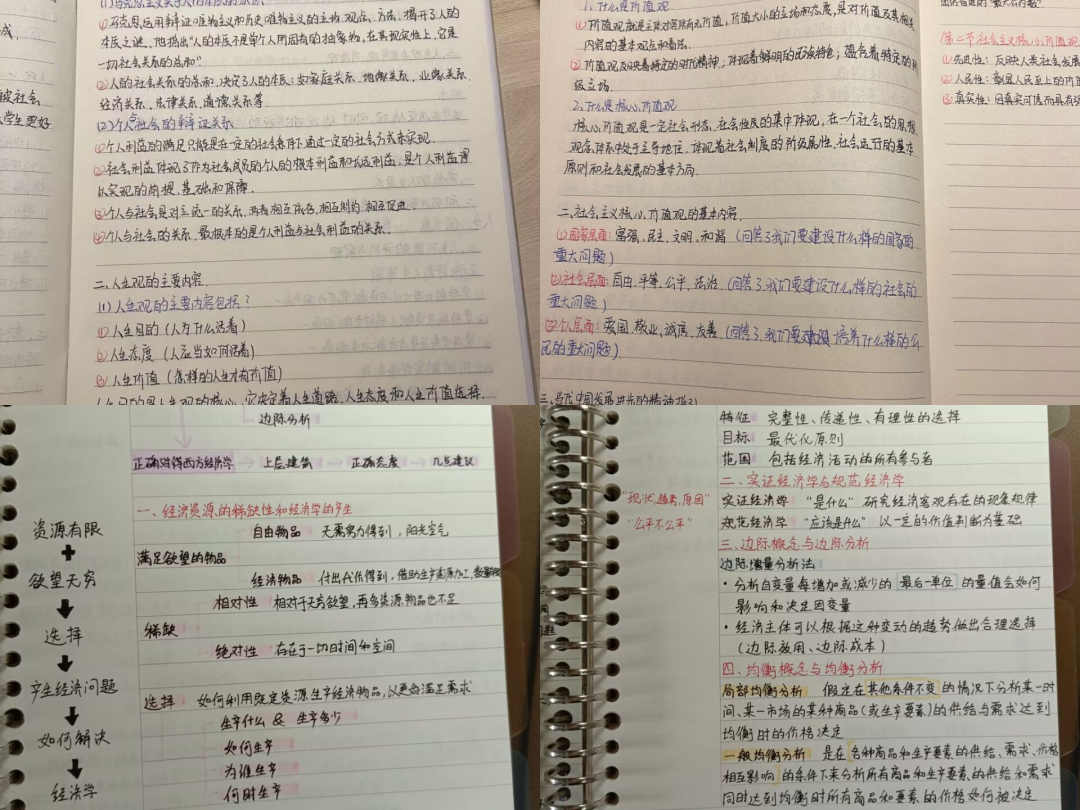 成,
被社会
大学生更好
①马克思运用辩证唯物主义和历史唯物主义的立场、观点、方法,揭开了人的
本质之谜。他指出“人的本质不是单个人所固有的抽象物,在其现实性上,它是
一切社会关系的总和”
②人的社会关系的总而,决定了人的本质:如家庭关系、地缘关系、业缘关系、
经济关系、法律关系、道德关系等.
(2)个人与社会的辩证关系
①个人利益的满足只能是在一定的社会条件下通过一定的社会方式来实现.
②社会利益体现了作为社会成员的个人的根本利益和长远利益,是个人利益得
以实现的前提、基础和保障.
③个人与社会是对立统一的关系,两者相互依存、相互制约、相互促进.
④个人与社会的关系,最根本的是个人利益与社会利益的关系.
二、人生观的主要内容.
(1)人生观的主要内容包括?
①人生目的(人为什么活着)
②人生态度(人应当如何活着)
③人生价值(怎样的人生才有价值)
人生目的是人生观的核心,它决定着人生道路、人生态度和人生价值选择.
1.什么是价值观
①价值观就是主体对客体有无价值、价值大小的立场和态度,是对价值及其相关
内容的基本观点和看法.
②价值观反映着特定的时代精神;体现着鲜明的民族特色;蕴含着特定的阶
级立场.
2.什么是核心价值观
核心价值观是一定社会形态、社会性质的集中体现,在一个社会的思想
观念体系中处于主导地位,体现着社会制度的阶级属性、社会运行的基本
原则和社会发展的基本方向.
二、社会主义核心价值观的基本内容.
①国家层面:富强、民主、文明、和谐(回答了我们要建设什么样的国家的
重大问题)
②社会层面:自由、平等、公平、法治(回答了我们要建设什么样的社会的
重大问题)
③个人层面:爱国、敬业、诚信、友善(回答了我们要建设培养什么样的公
民的重大问题)
三、当代中国发展进步的精神指引
第二节社会主义核心价值观
①先进性:反映人类社会发展
②人民性:彰显人民至上的价值
③真实性:因真实可信而具有强
边际分析
正确对待西方经济学 上层建筑 正确态度 几点建议
一、经济资源的稀缺性和经济学的产生
自由物品 无需努力得到,阳光空气
满足欲望的物品
经济物品 付出代价得到,借助生产资源加工,数量有限
相对性 相对于无穷欲望,再多资源、物品也不足
稀缺
绝对性 存在于一切时间和空间
选择 如何利用既定资源生产经济物品,以更好满足需求
生产什么 & 生产多少
如何生产
为谁生产
何时生产
资源有限
+
欲望无穷
选择
产生经济问题
如何解决
经济学
特征 完整性、传递性、有理性的选择
目标 最优化原则
范围 包括经济活动的所有参与者
二、实证经济学与规范经济学
“现状,趋势,原因” 实证经济学 “是什么” 研究经济客观存在的现象规律
“公平不公平” 规范经济学 “应该是什么” 以一定的价值判断为基础
三、边际概念与边际分析
边际增量分析法
• 分析自变量每增加或减少的最后一单位的量值会如何
影响和决定因变量
• 经济主体可以根据这种变动的趋势做出合理选择
(边际效用、边际成本)
四、均衡概念与均衡分析
局部均衡分析 假定在其他条件不变的情况下分析某一时
间、某一市场的某种商品(或生产要素)的供给与需求达到
均衡时的价格决定
一般均衡分析 是在各种商品和生产要素的供给、需求、价格
相互影响的条件下来分析所有商品和生产要素的供给和需求
同时达到均衡时所有商品和要素的价格如何被决定